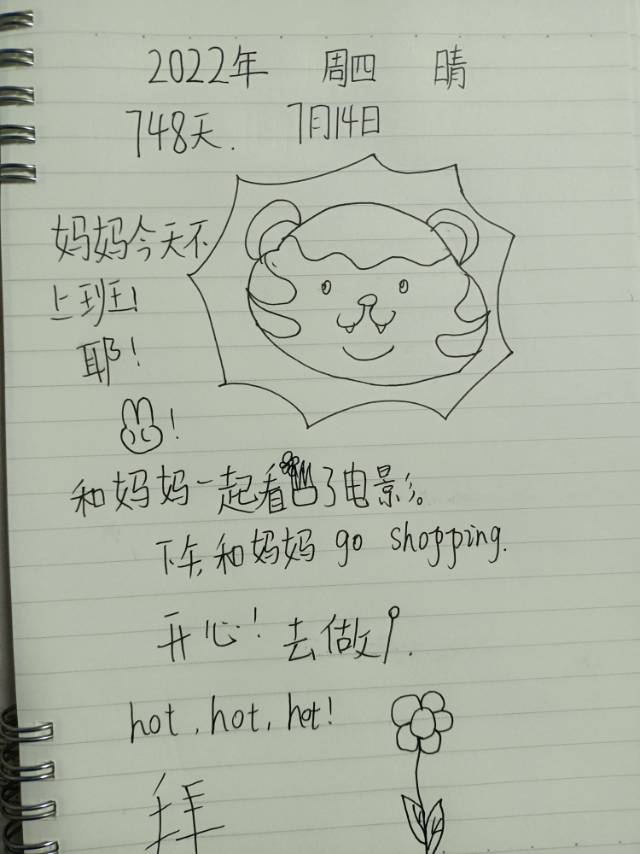 2022年 周四 晴
748天. 7月14日
妈妈今天不
上班!
耶!
!
和妈妈一起看了电影。
下午,和妈妈 go shopping.
开心! 去做
hot, hot, hot!
拜